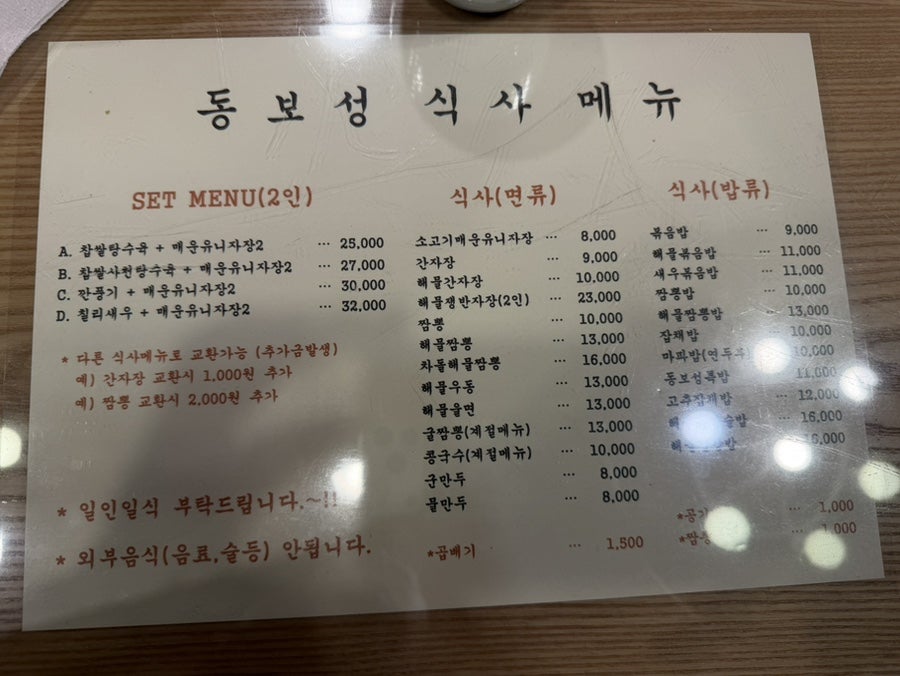 동보성 식사 메뉴
SET MENU(2인)
A. 찹쌀탕수육 + 매운유니자장2 ··· 25,000
B. 찹쌀사천탕수육 + 매운유니자장2 ··· 27,000
C. 깐풍기 + 매운유니자장2 ··· 30,000
D. 칠리새우 + 매운유니자장2 ··· 32,000
* 다른 식사메뉴로 교환가능 (추가금발생)
예) 간자장 교환시 1,000원 추가
예) 짬뽕 교환시 2,000원 추가
* 일인일식 부탁드립니다.~!!
* 외부음식(음료,술등) 안됩니다.
식사(면류)
소고기매운유니자장 ··· 8,000
간자장 ··· 9,000
해물간자장 ··· 10,000
해물쟁반자장(2인) ··· 23,000
짬뽕 ··· 10,000
해물짬뽕 ··· 13,000
차돌해물짬뽕 ··· 16,000
해물우동 ··· 13,000
해물울면 ··· 13,000
굴짬뽕(계절메뉴) ··· 13,000
콩국수(계절메뉴) ··· 10,000
군만두 ··· 8,000
물만두 ··· 8,000
*곱배기 ··· 1,500
식사(밥류)
볶음밥 ··· 9,000
해물볶음밥 ··· 11,000
새우볶음밥 ··· 11,000
짬뽕밥 ··· 10,000
해물짬뽕밥 ··· 13,000
잡채밥 ··· 10,000
마파밥(연두부) 10,000
동보성특밥 11,000
고추잡채밥 ··· 12,000
··· 16,000
··· 1,000
··· 1,000